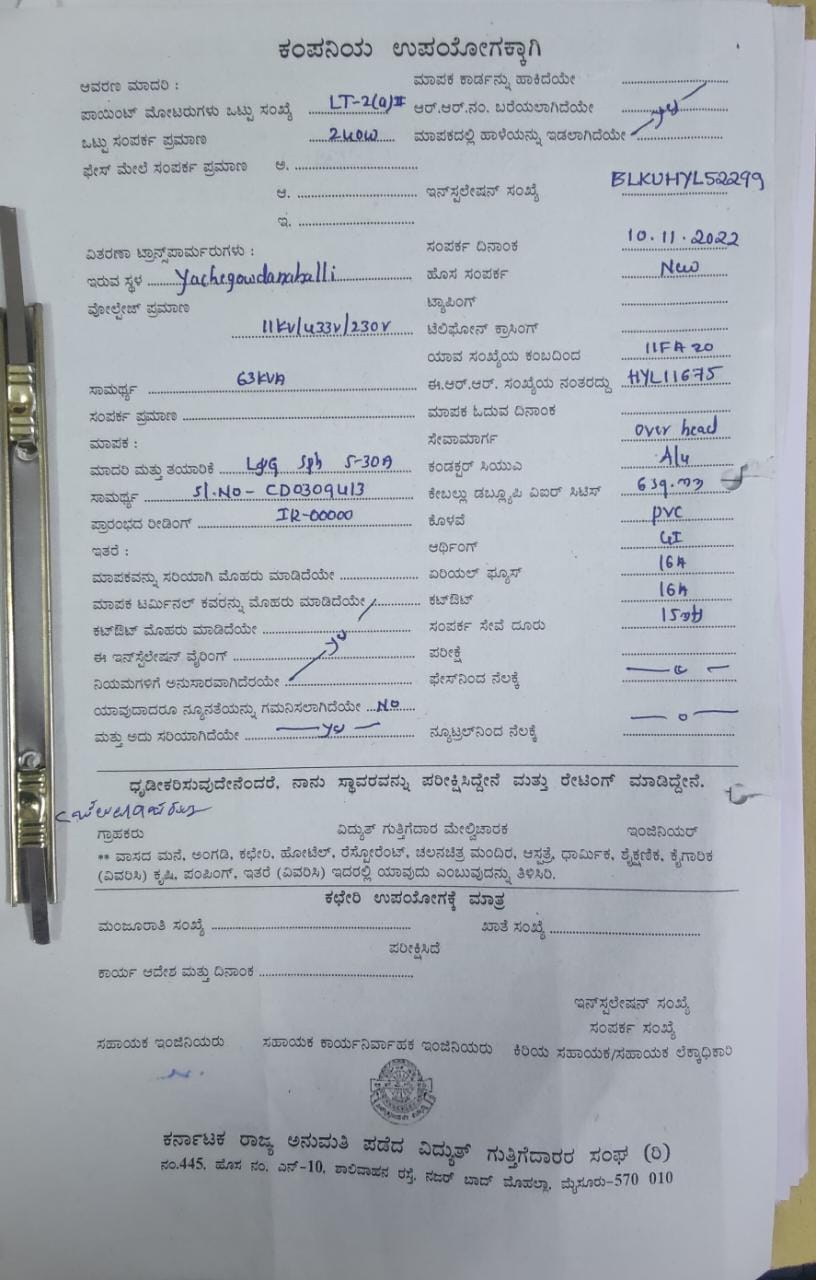 ಕಂಪನಿಯ ಉಪಯೋಗಕ್ಕಾಗಿ
ಆವರಣ ಮಾದರಿ : ಮಾಪಕ ಕಾರ್ಡನ್ನು ಹಾಕಿದೆಯೇ
ಪಾಯಿಂಟ್ ಮೋಟರುಗಳು ಒಟ್ಟು ಸಂಖ್ಯೆ LT-2(a)II ಆರ್.ಆರ್.ನಂ. ಬರೆಯಲಾಗಿದೆಯೇ
ಒಟ್ಟು ಸಂಪರ್ಕ ಪ್ರಮಾಣ 240W ಮಾಪಕದಲ್ಲಿ ಹಾಳೆಯನ್ನು ಇಡಲಾಗಿದೆಯೇ yes
ಫೇಸ್ ಮೇಲೆ ಸಂಪರ್ಕ ಪ್ರಮಾಣ ಅ.
ಆ. ಇನ್‌ಸ್ಟಲೇಷನ್ ಸಂಖ್ಯೆ BLKUHYL52299
ಇ.
ವಿತರಣಾ ಟ್ರಾನ್ಸ್‌ಪಾರ್ಮರುಗಳು : ಸಂಪರ್ಕ ದಿನಾಂಕ 10.11.2022
ಇರುವ ಸ್ಥಳ Yachegowdanahalli ಹೊಸ ಸಂಪರ್ಕ New
ವೋಲ್ಟೇಜ್ ಪ್ರಮಾಣ ಟ್ಯಾಪಿಂಗ್
11KV/433V/230V ಟೆಲಿಫೋನ್ ಕ್ರಾಸಿಂಗ್
ಯಾವ ಸಂಖ್ಯೆಯ ಕಂಬದಿಂದ 11FA20
ಸಾಮರ್ಥ್ಯ 63KVA ಈ.ಆರ್.ಆರ್. ಸಂಖ್ಯೆಯ ನಂತರದ್ದು HYL11675
ಸಂಪರ್ಕ ಪ್ರಮಾಣ ಮಾಪಕ ಓದುವ ದಿನಾಂಕ
ಮಾಪಕ : ಸೇವಾಮಾರ್ಗ over head
ಮಾದರಿ ಮತ್ತು ತಯಾರಿಕೆ L&G Sph 5-30A ಕಂಡಕ್ಟರ್ ಸಿಯುಎ Alu
ಸಾಮರ್ಥ್ಯ Sl.No- CD0309413 ಕೇಬಲ್ಲು ಡಬ್ಲ್ಯೂಪಿ ವಿಐರ್ ಸಿಟಿಸ್ 6sq.mm
ಪ್ರಾರಂಭದ ರೀಡಿಂಗ್ IR-00000 ಕೊಳವೆ PVC
ಇತರೆ : ಆರ್ಥಿಂಗ್ GI
ಮಾಪಕವನ್ನು ಸರಿಯಾಗಿ ಮೊಹರು ಮಾಡಿದೆಯೇ ಏರಿಯಲ್ ಫ್ಯೂಸ್ 16A
ಮಾಪಕ ಟರ್ಮಿನಲ್ ಕವರನ್ನು ಮೊಹರು ಮಾಡಿದೆಯೇ ಕಟ್‌ಔಟ್ 16A
ಕಟ್‌ಔಟ್ ಮೊಹರು ಮಾಡಿದೆಯೇ ಸಂಪರ್ಕ ಸೇವೆ ದೂರು 15mt
ಈ ಇನ್‌ಸ್ಟಲೇಷನ್ ವೈರಿಂಗ್ yes ಪರೀಕ್ಷೆ
ನಿಯಮಗಳಿಗೆ ಅನುಸಾರವಾಗಿದೆರಯೇ ಫೇಸ್‌ನಿಂದ ನೆಲಕ್ಕೆ
ಯಾವುದಾದರೂ ನ್ಯೂನತೆಯನ್ನು ಗಮನಿಸಲಾಗಿದೆಯೇ No
ಮತ್ತು ಅದು ಸರಿಯಾಗಿದೆಯೇ yes ನ್ಯೂಟ್ರಲ್‌ನಿಂದ ನೆಲಕ್ಕೆ
ಧೃಡೀಕರಿಸುವುದೇನೆಂದರೆ, ನಾನು ಸ್ಥಾವರವನ್ನು ಪರೀಕ್ಷಿಸಿದ್ದೇನೆ ಮತ್ತು ರೇಟಿಂಗ್ ಮಾಡಿದ್ದೇನೆ.
ಗ್ರಾಹಕರು ವಿದ್ಯುತ್ ಗುತ್ತಿಗೆದಾರ ಮೇಲ್ವಿಚಾರಕ ಇಂಜಿನಿಯರ್
** ವಾಸದ ಮನೆ, ಅಂಗಡಿ, ಕಛೇರಿ, ಹೋಟೆಲ್, ರೆಸ್ಟೋರೆಂಟ್, ಚಲನಚಿತ್ರ ಮಂದಿರ, ಆಸ್ಪತ್ರೆ, ಧಾರ್ಮಿಕ, ಶೈಕ್ಷಣಿಕ, ಕೈಗಾರಿಕ
(ವಿವರಿಸಿ) ಕೃಷಿ, ಪಂಪಿಂಗ್, ಇತರೆ (ವಿವರಿಸಿ) ಇದರಲ್ಲಿ ಯಾವುದು ಎಂಬುವುದನ್ನು ತಿಳಿಸಿರಿ.
ಕಛೇರಿ ಉಪಯೋಗಕ್ಕೆ ಮಾತ್ರ
ಮಂಜೂರಾತಿ ಸಂಖ್ಯೆ ಖಾತೆ ಸಂಖ್ಯೆ
ಪರೀಕ್ಷಿಸಿದೆ
ಕಾರ್ಯ ಆದೇಶ ಮತ್ತು ದಿನಾಂಕ
ಇನ್‌ಸ್ಟಲೇಷನ್ ಸಂಖ್ಯೆ
ಸಂಪರ್ಕ ಸಂಖ್ಯೆ
ಸಹಾಯಕ ಇಂಜಿನಿಯರು ಸಹಾಯಕ ಕಾರ್ಯನಿರ್ವಾಹಕ ಇಂಜಿನಿಯರು ಕಿರಿಯ ಸಹಾಯಕ/ಸಹಾಯಕ ಲೆಕ್ಕಾಧಿಕಾರಿ
ಕರ್ನಾಟಕ ರಾಜ್ಯ ಅನುಮತಿ ಪಡೆದ ವಿದ್ಯುತ್ ಗುತ್ತಿಗೆದಾರರ ಸಂಘ (ರಿ)
ನಂ.445, ಹೊಸ ನಂ. ಎನ್-10, ಶಾಲಿವಾಹನ ರಸ್ತೆ, ನಜರ್ ಬಾದ್ ಮೊಹಲ್ಲಾ, ಮೈಸೂರು-570 010